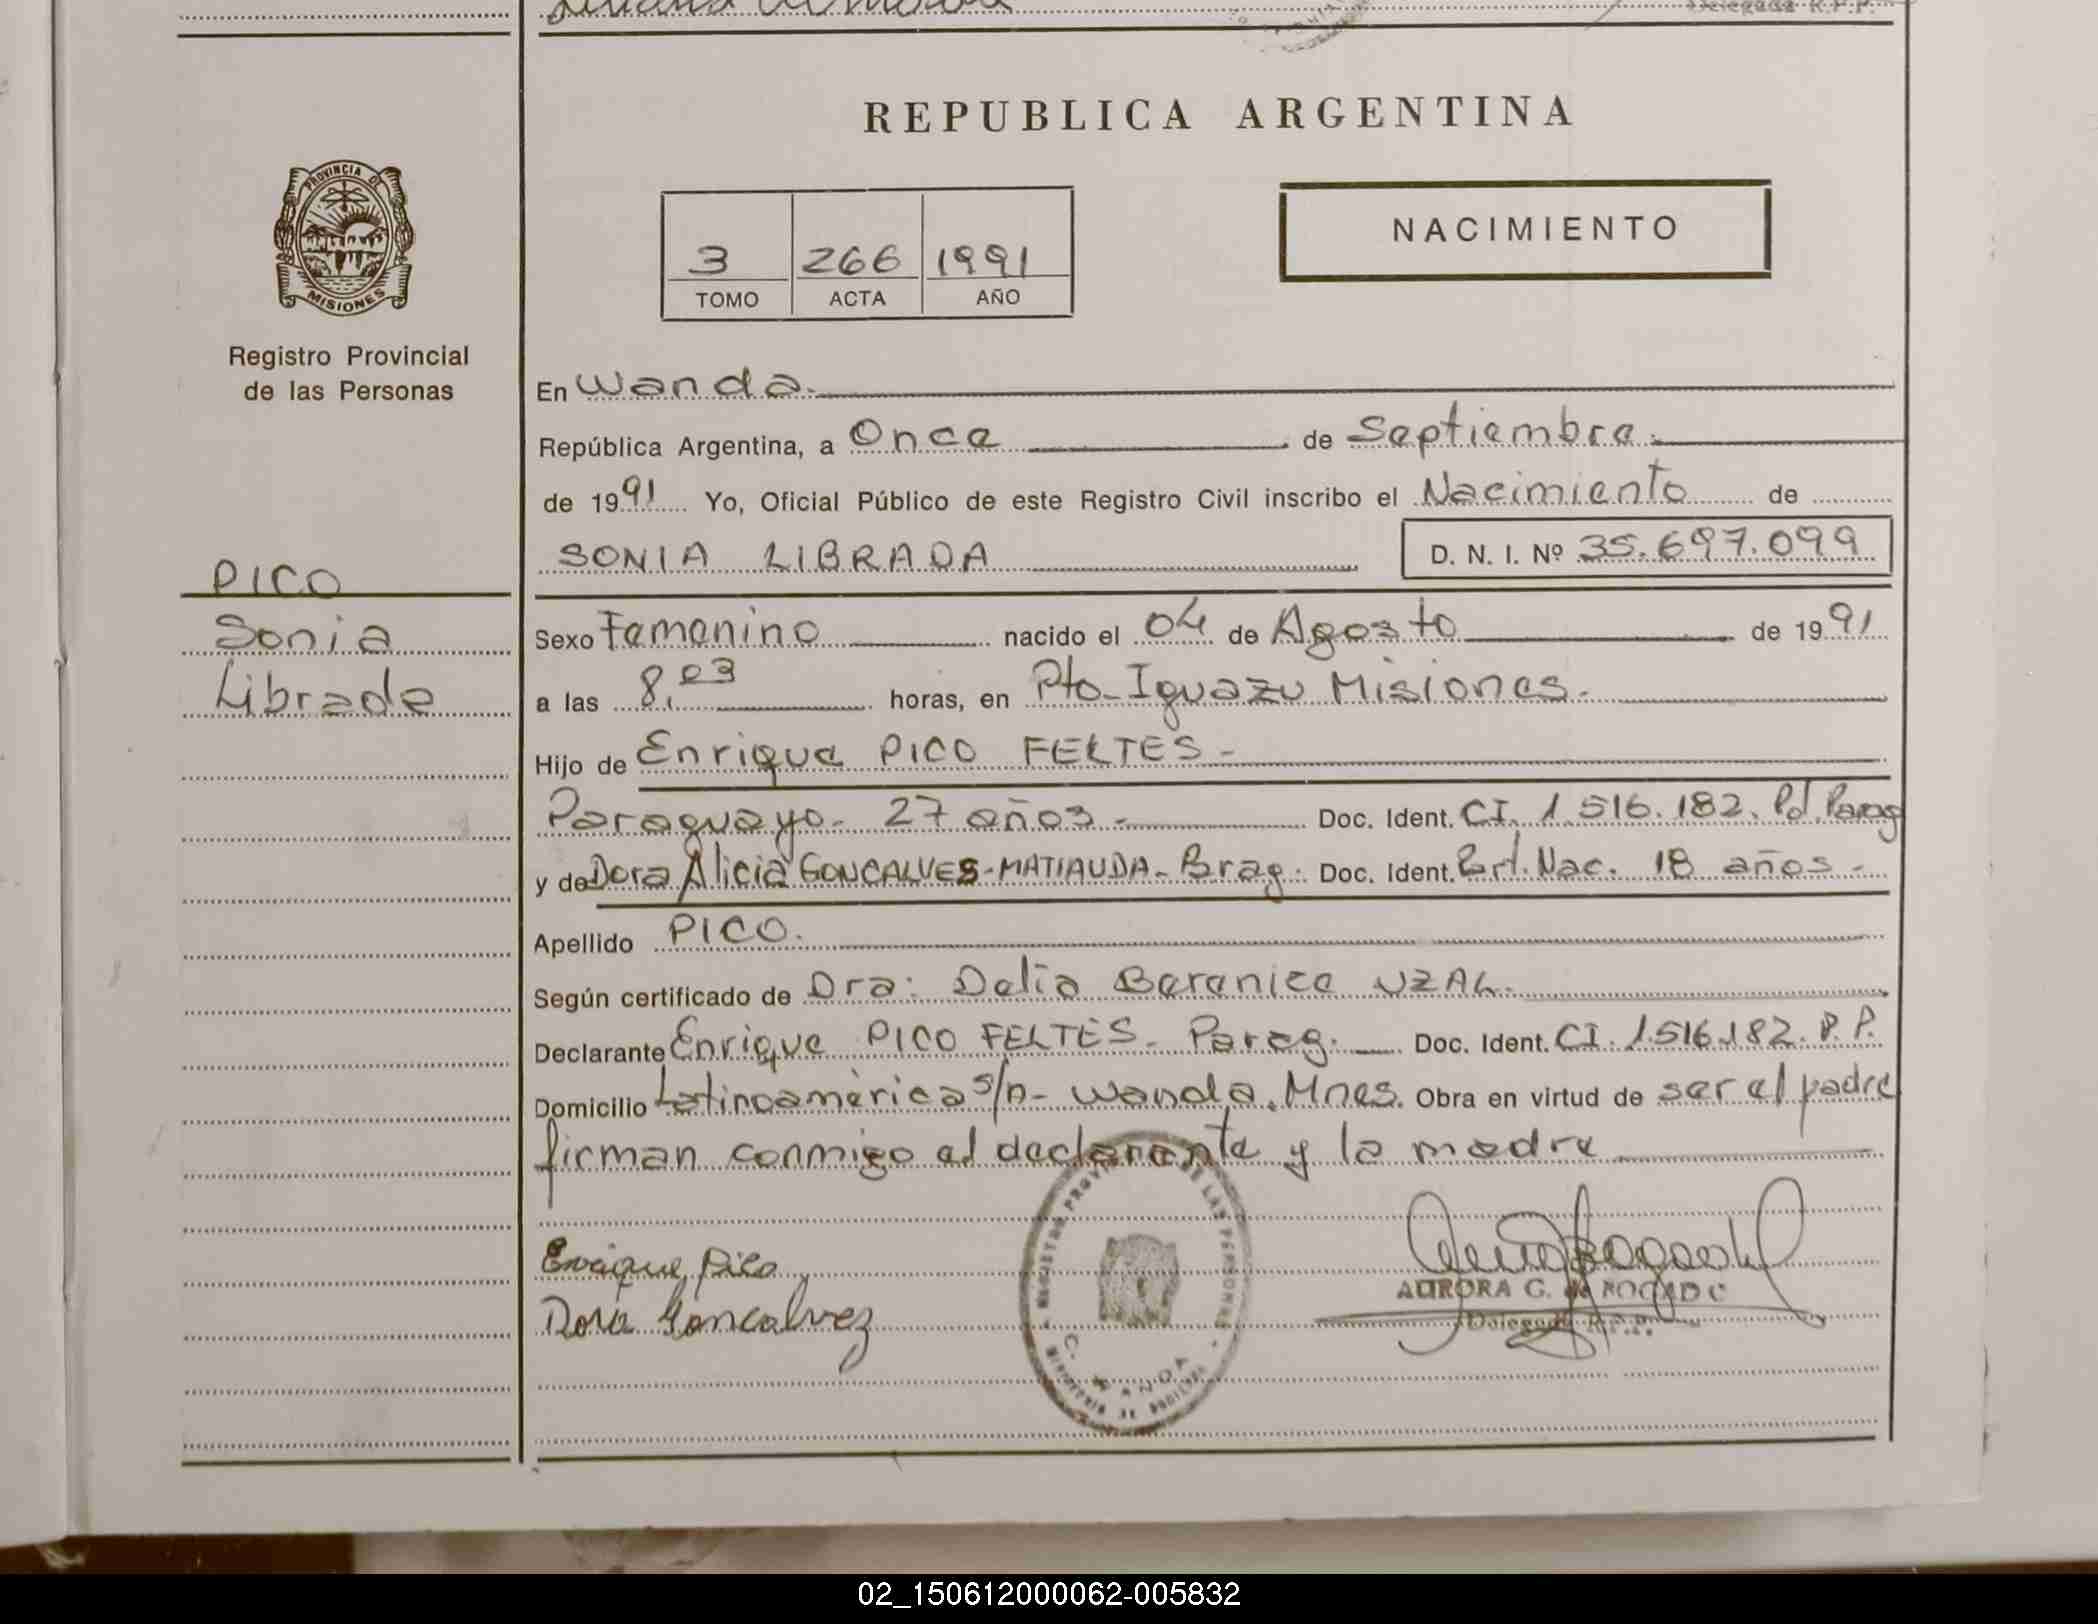 Delegada R.P.P.
REPUBLICA ARGENTINA
PROVINCIA DE
MISIONES
Registro Provincial
de las Personas
3 266 1991
TOMO ACTA AÑO
NACIMIENTO
En Wanda.
República Argentina, a Once de Septiembre.
de 1991 Yo, Oficial Público de este Registro Civil inscribo el Nacimiento de
SONIA LIBRADA D. N. I. Nº 35.697.099
PICO
Sonia
Librada
Sexo Femenino nacido el 04 de Agosto de 1991
a las 8,03 horas, en Pto-Iguazu Misiones.
Hijo de Enrique PICO FELTES-
Paraguayo- 27 años- Doc. Ident. CI. 1.516.182. Pol. Parag
y de Dora Alicia GONCALVES-MATIAUDA- Doc. Ident. Nac. 18 años-
Apellido PICO.
Según certificado de Dra: Delia Berenice UZAL.
Declarante Enrique PICO FELTES- Parag. Doc. Ident. CI. 1.516.182. P. P.
Domicilio Latinoamérica s/n- Wanda. Mnes. Obra en virtud de ser el padre
firman conmigo el declarante y la madre
Enrique Pico
Dora Goncalvez
REGISTRO PROVINCIAL DE LAS PERSONAS
C. WANDA
MINISTERIO DE GOBIERNO
AURORA G. de BOGADO
Delegada R.P.P.
02_150612000062-005832